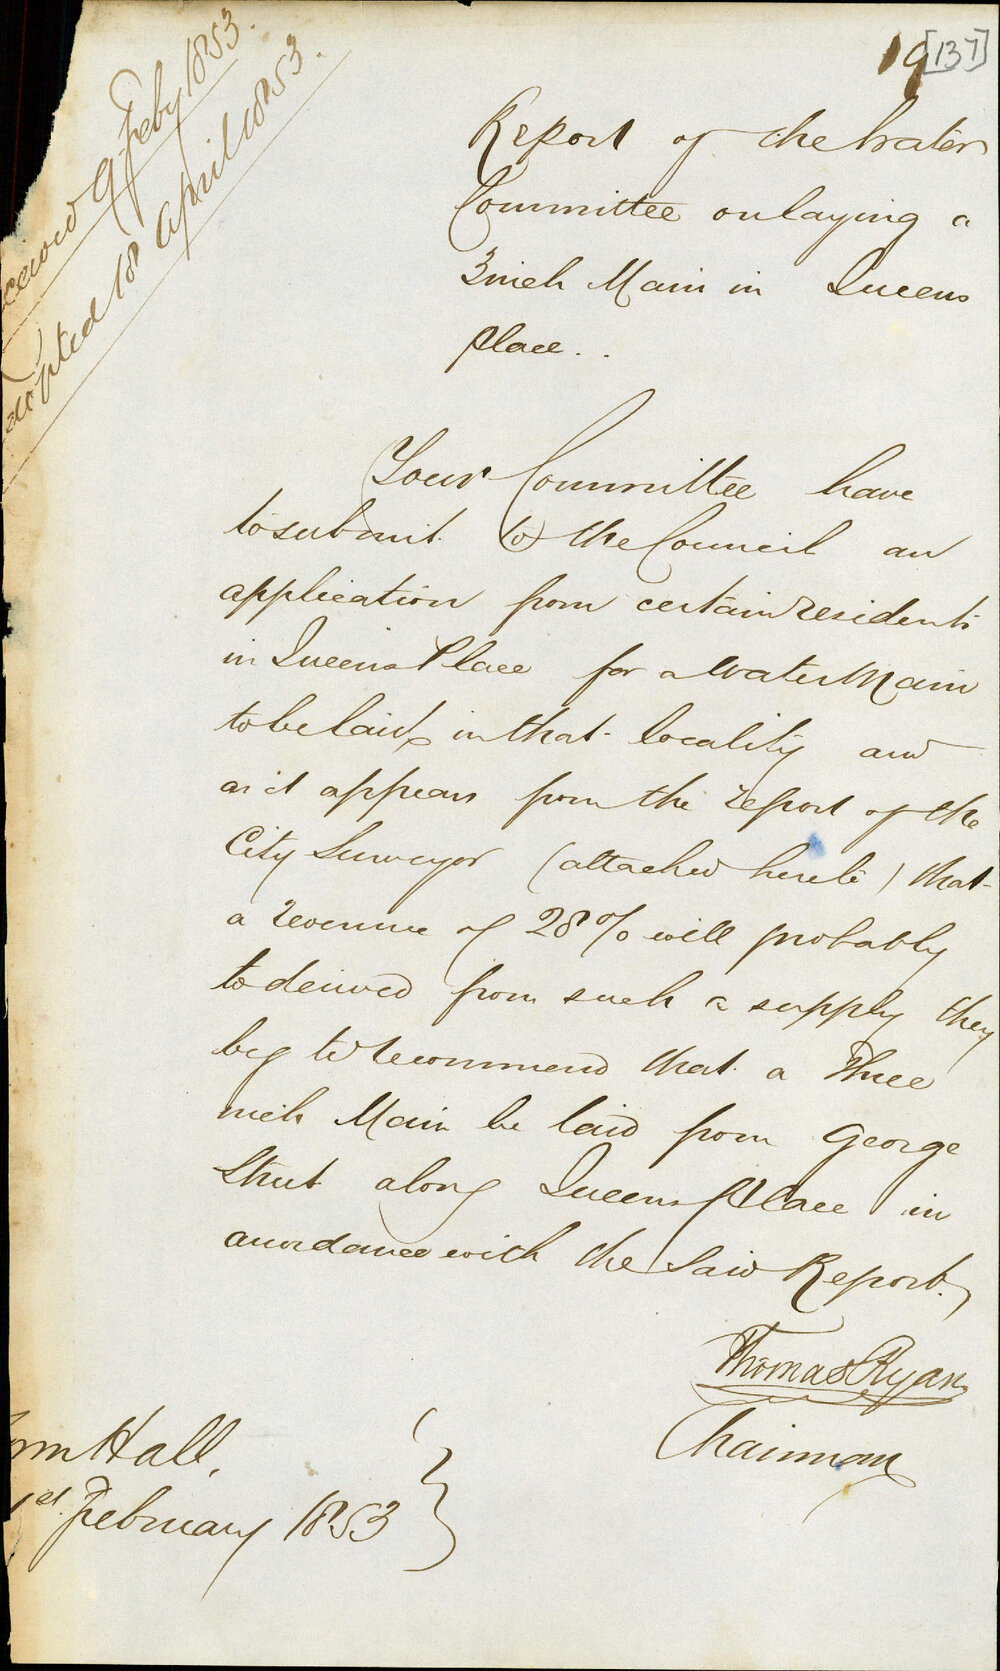 19 [137]
Received 9 Feby 1853.
adopted 18 April 1853.
Report of the Water
Committee on laying a
3 inch Main in Queens
place..
Your Committee have
to submit to the Council an
application from certain residents
in Queens Place for a Water Main
to be laid in that locality and
as it appears from the report of the
City Surveyor (attached hereto) that
a revenue of 28% will probably
to derived from such a supply they
beg to recommend that a three
inch Main be laid from George
Street along Queens Place in
accordance with the said Report.
Thomas Ryan
Chairman
Town Hall,
1st February 1853